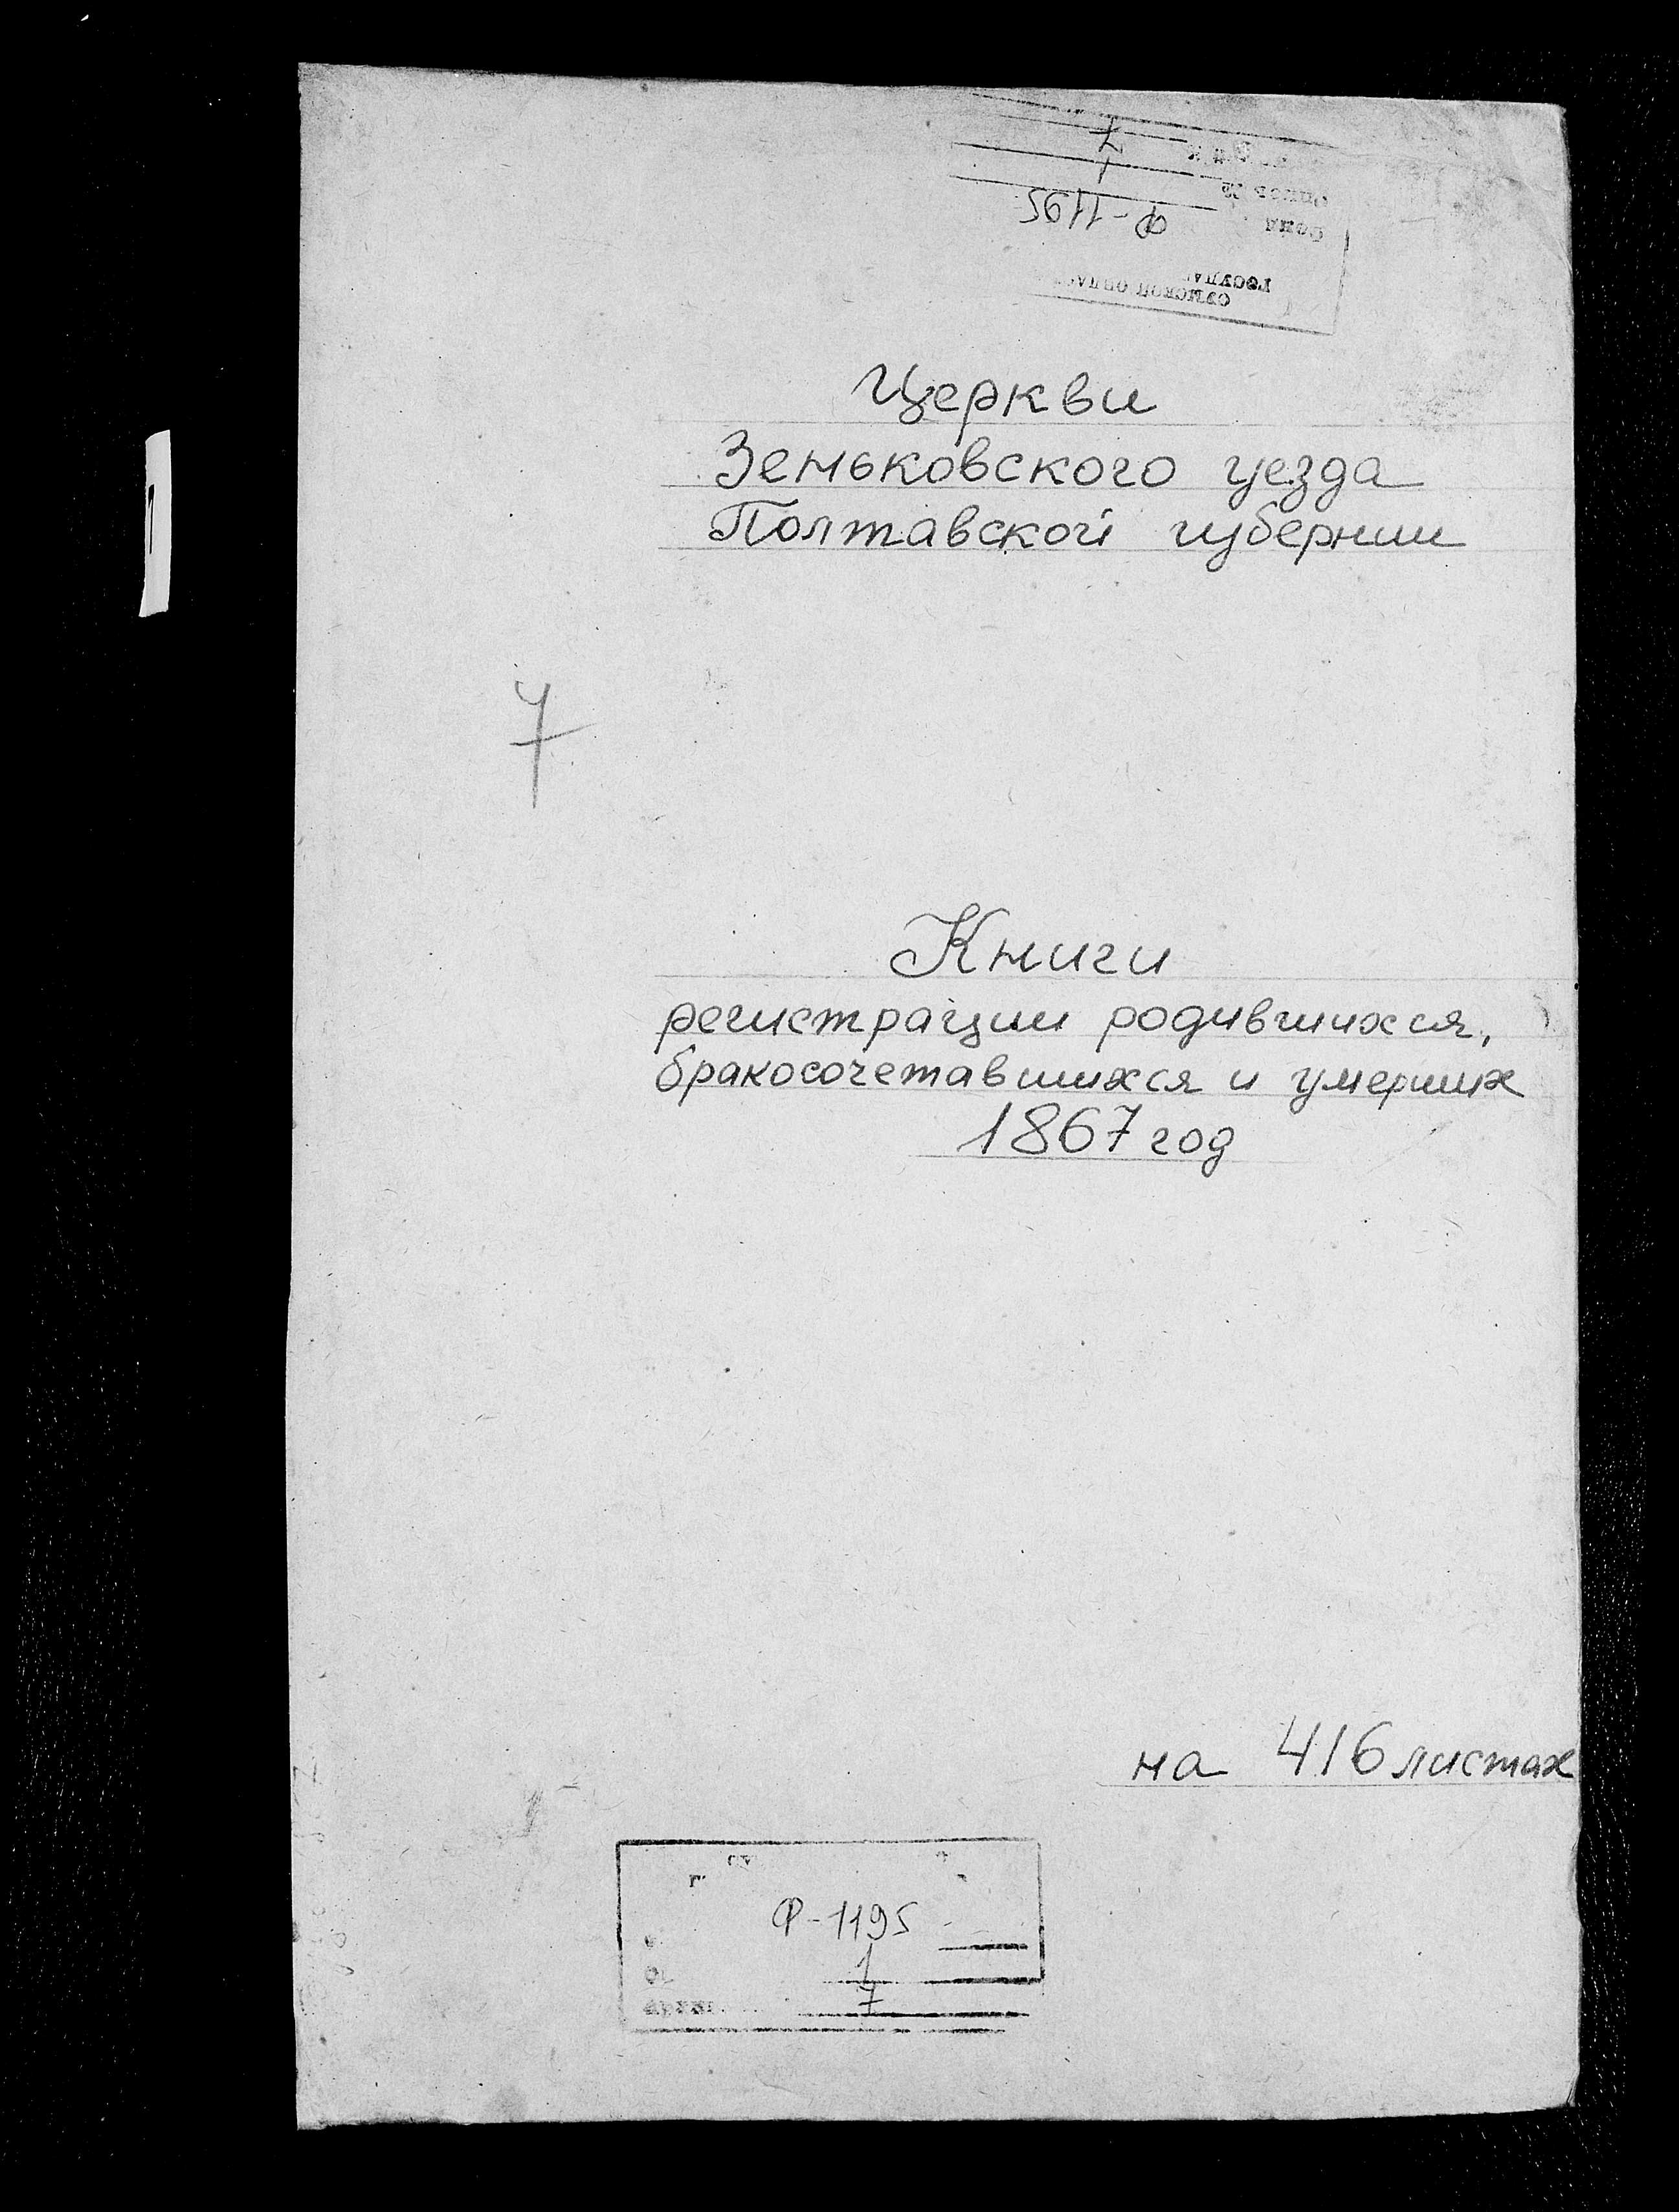 Ф-1195
1
7
Церкви
Зеньковского уезда
Полтавской губернии
7
Книги
регистрации родившихся,
бракосочетавшихся и умерших
1867 год
на 416 листах
Ф-1195
1
7